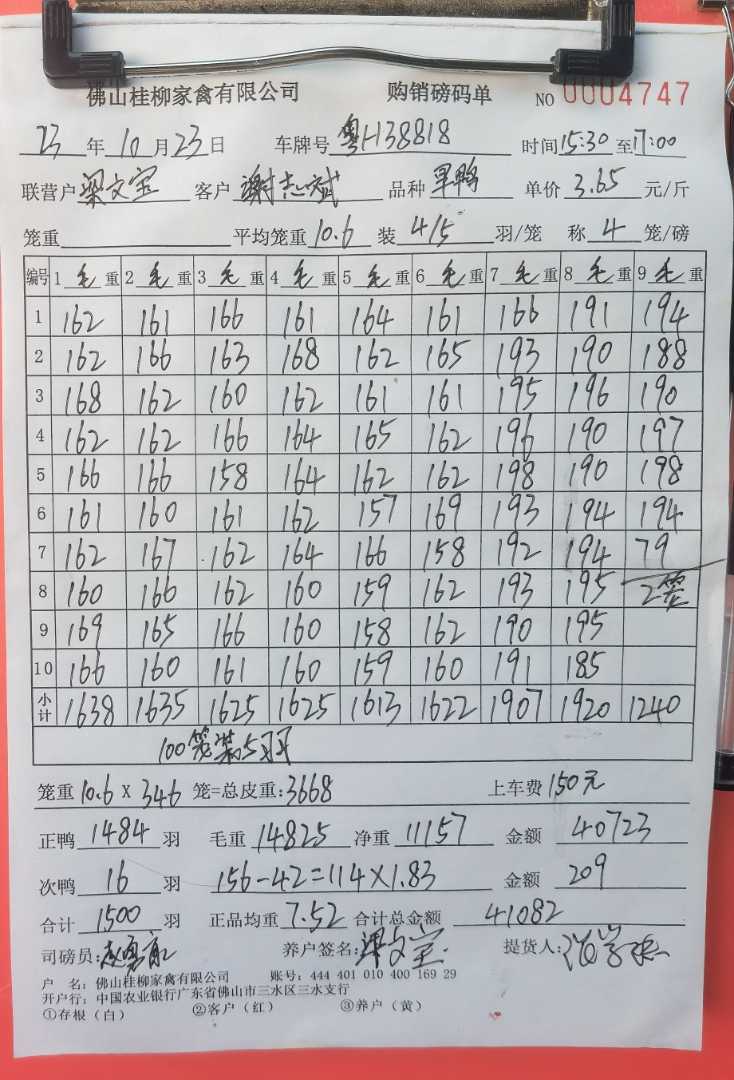 佛山桂柳家禽有限公司 购销磅码单 NO 0004747
23年10月23日 车牌号 粤H38818 时间15:30至17:00
联营户 梁文宝 客户 谢志斌 品种 旱鸭 单价 3.65 元/斤
笼重 平均笼重 10.6 装 4/5 羽/笼 称 4 笼/磅
编号 1 毛 重 2 毛 重 3 毛 重 4 毛 重 5 毛 重 6 毛 重 7 毛 重 8 毛 重 9 毛 重
1 162 161 166 161 164 161 166 191 194
2 162 166 163 168 162 165 193 190 188
3 168 162 160 162 161 161 195 196 190
4 162 162 166 164 165 162 196 190 197
5 166 166 158 164 162 162 198 190 198
6 161 160 161 162 157 169 193 194 194
7 162 167 162 164 166 158 192 194 79
8 160 166 162 160 159 162 193 195 2笼
9 169 165 166 160 158 162 190 195
10 166 160 161 160 159 160 191 185
小计 1638 1635 1625 1625 1613 1622 1907 1920 1240
100笼装5羽
笼重 10.6 X 346 笼=总皮重:3668 上车费 150元
正鸭 1484 羽 毛重 14825 净重 11157 金额 40723
次鸭 16 羽 156-42=114×1.83 金额 209
合计 1500 羽 正品均重 7.52 合计总金额 41082
司磅员: 养户签名: 梁文宝 提货人:
户 名: 佛山桂柳家禽有限公司 账号: 444 401 010 400 169 29
开户行: 中国农业银行广东省佛山市三水区三水支行
①存根(白) ②客户(红) ③养户(黄)